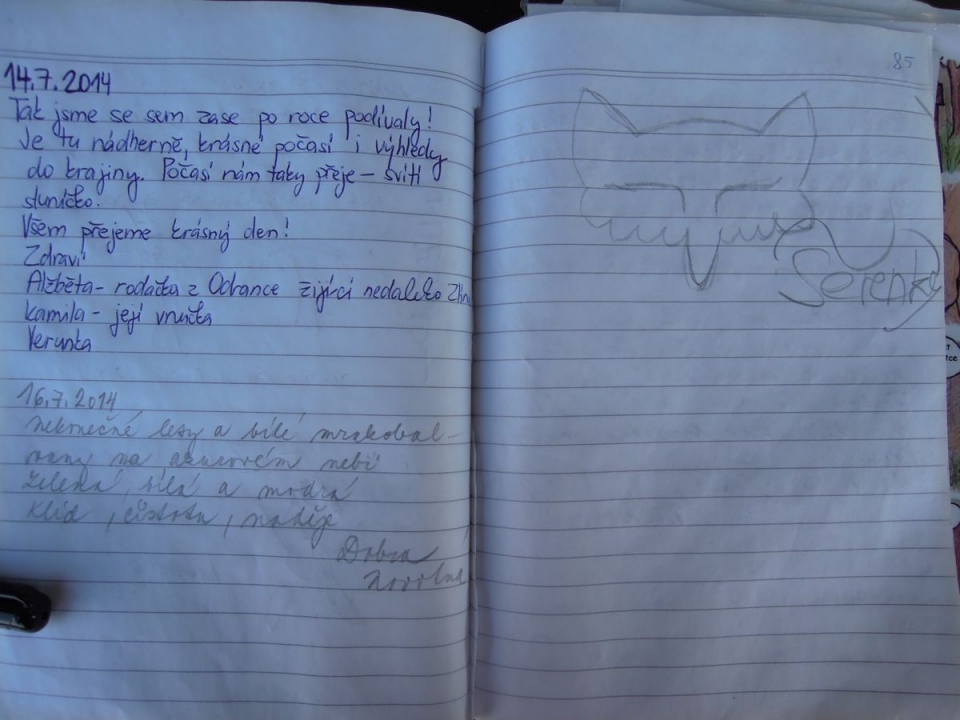 14.7.2014
Tak jsme se sem zase po roce podívaly!
Je tu nádherně, krásné počasí i výhledy
do krajiny. Počasí nám taky přeje – svítí
sluníčko.
Všem přejeme krásný den!
Zdraví
Alžběta – rodačka z Odrance žijící nedaleko Zlín
kamila – její vnučka
Verunka
16.7.2014
nekonečné lesy a bílé mrakobal-
vany na azurovém nebi
zelená, bílá a modrá
klid, čistota, naděje
Dobra
85
Serenky